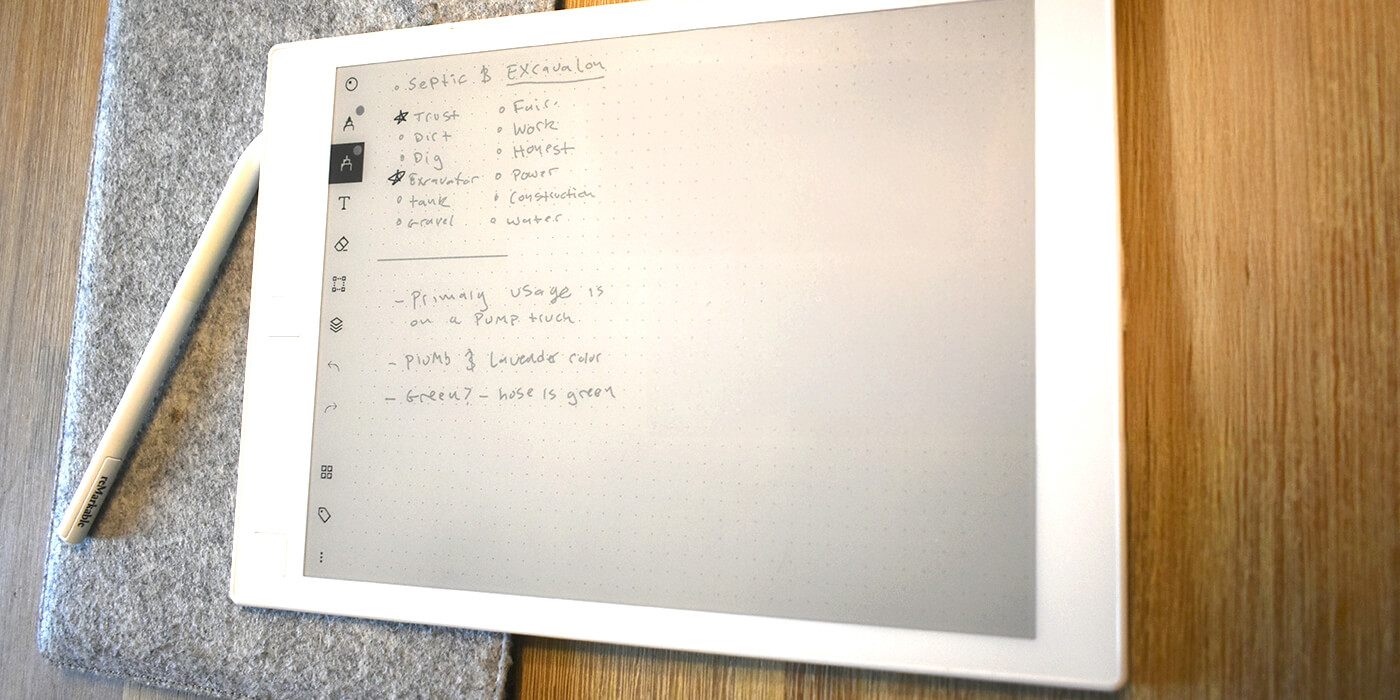 Septic & Excavaton
Trust
Dirt
Dig
Exravator
tank
Gravel
Fair
Work
Honest
Power
Construction
Water
- Primary usage is
on a PUMP truck.
- Plumb & Lavender color
- Green? - hose is green
T
reMarkable